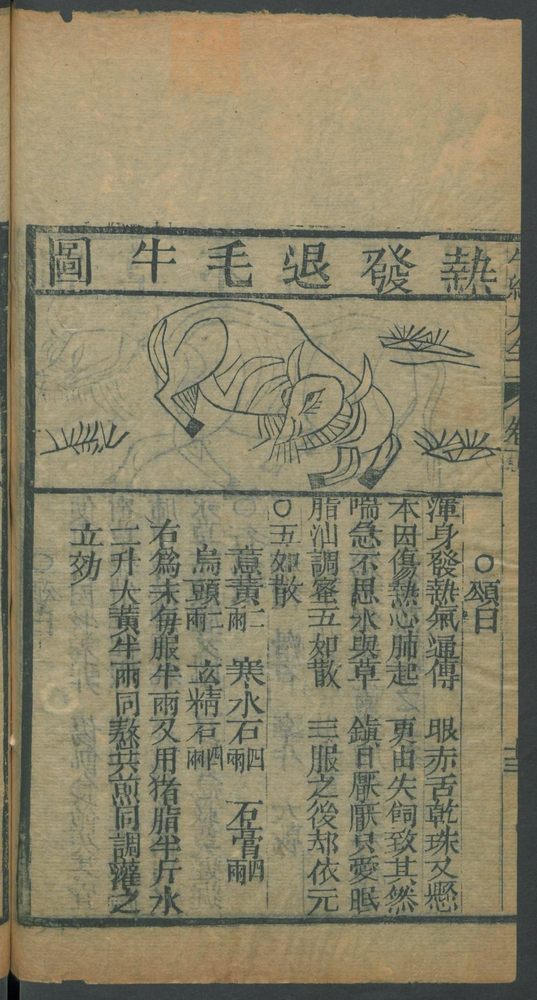 熱發退毛牛圖
○頌曰
渾身發熱氣逼傳　眼赤舌乾珠又懸
本因傷熱心肺起　更由失飼致其然
喘急不思水與草　鎮日厭厭只愛眠
脂油調蜜五如散　三服之後却依元
○五如散
黃二兩　寒水石四兩　石膏四兩
烏頭二兩　玄精石四兩
右為末每服半兩又用猪脂半斤水
二升大黃半兩同熬共煎同調灌之
立効